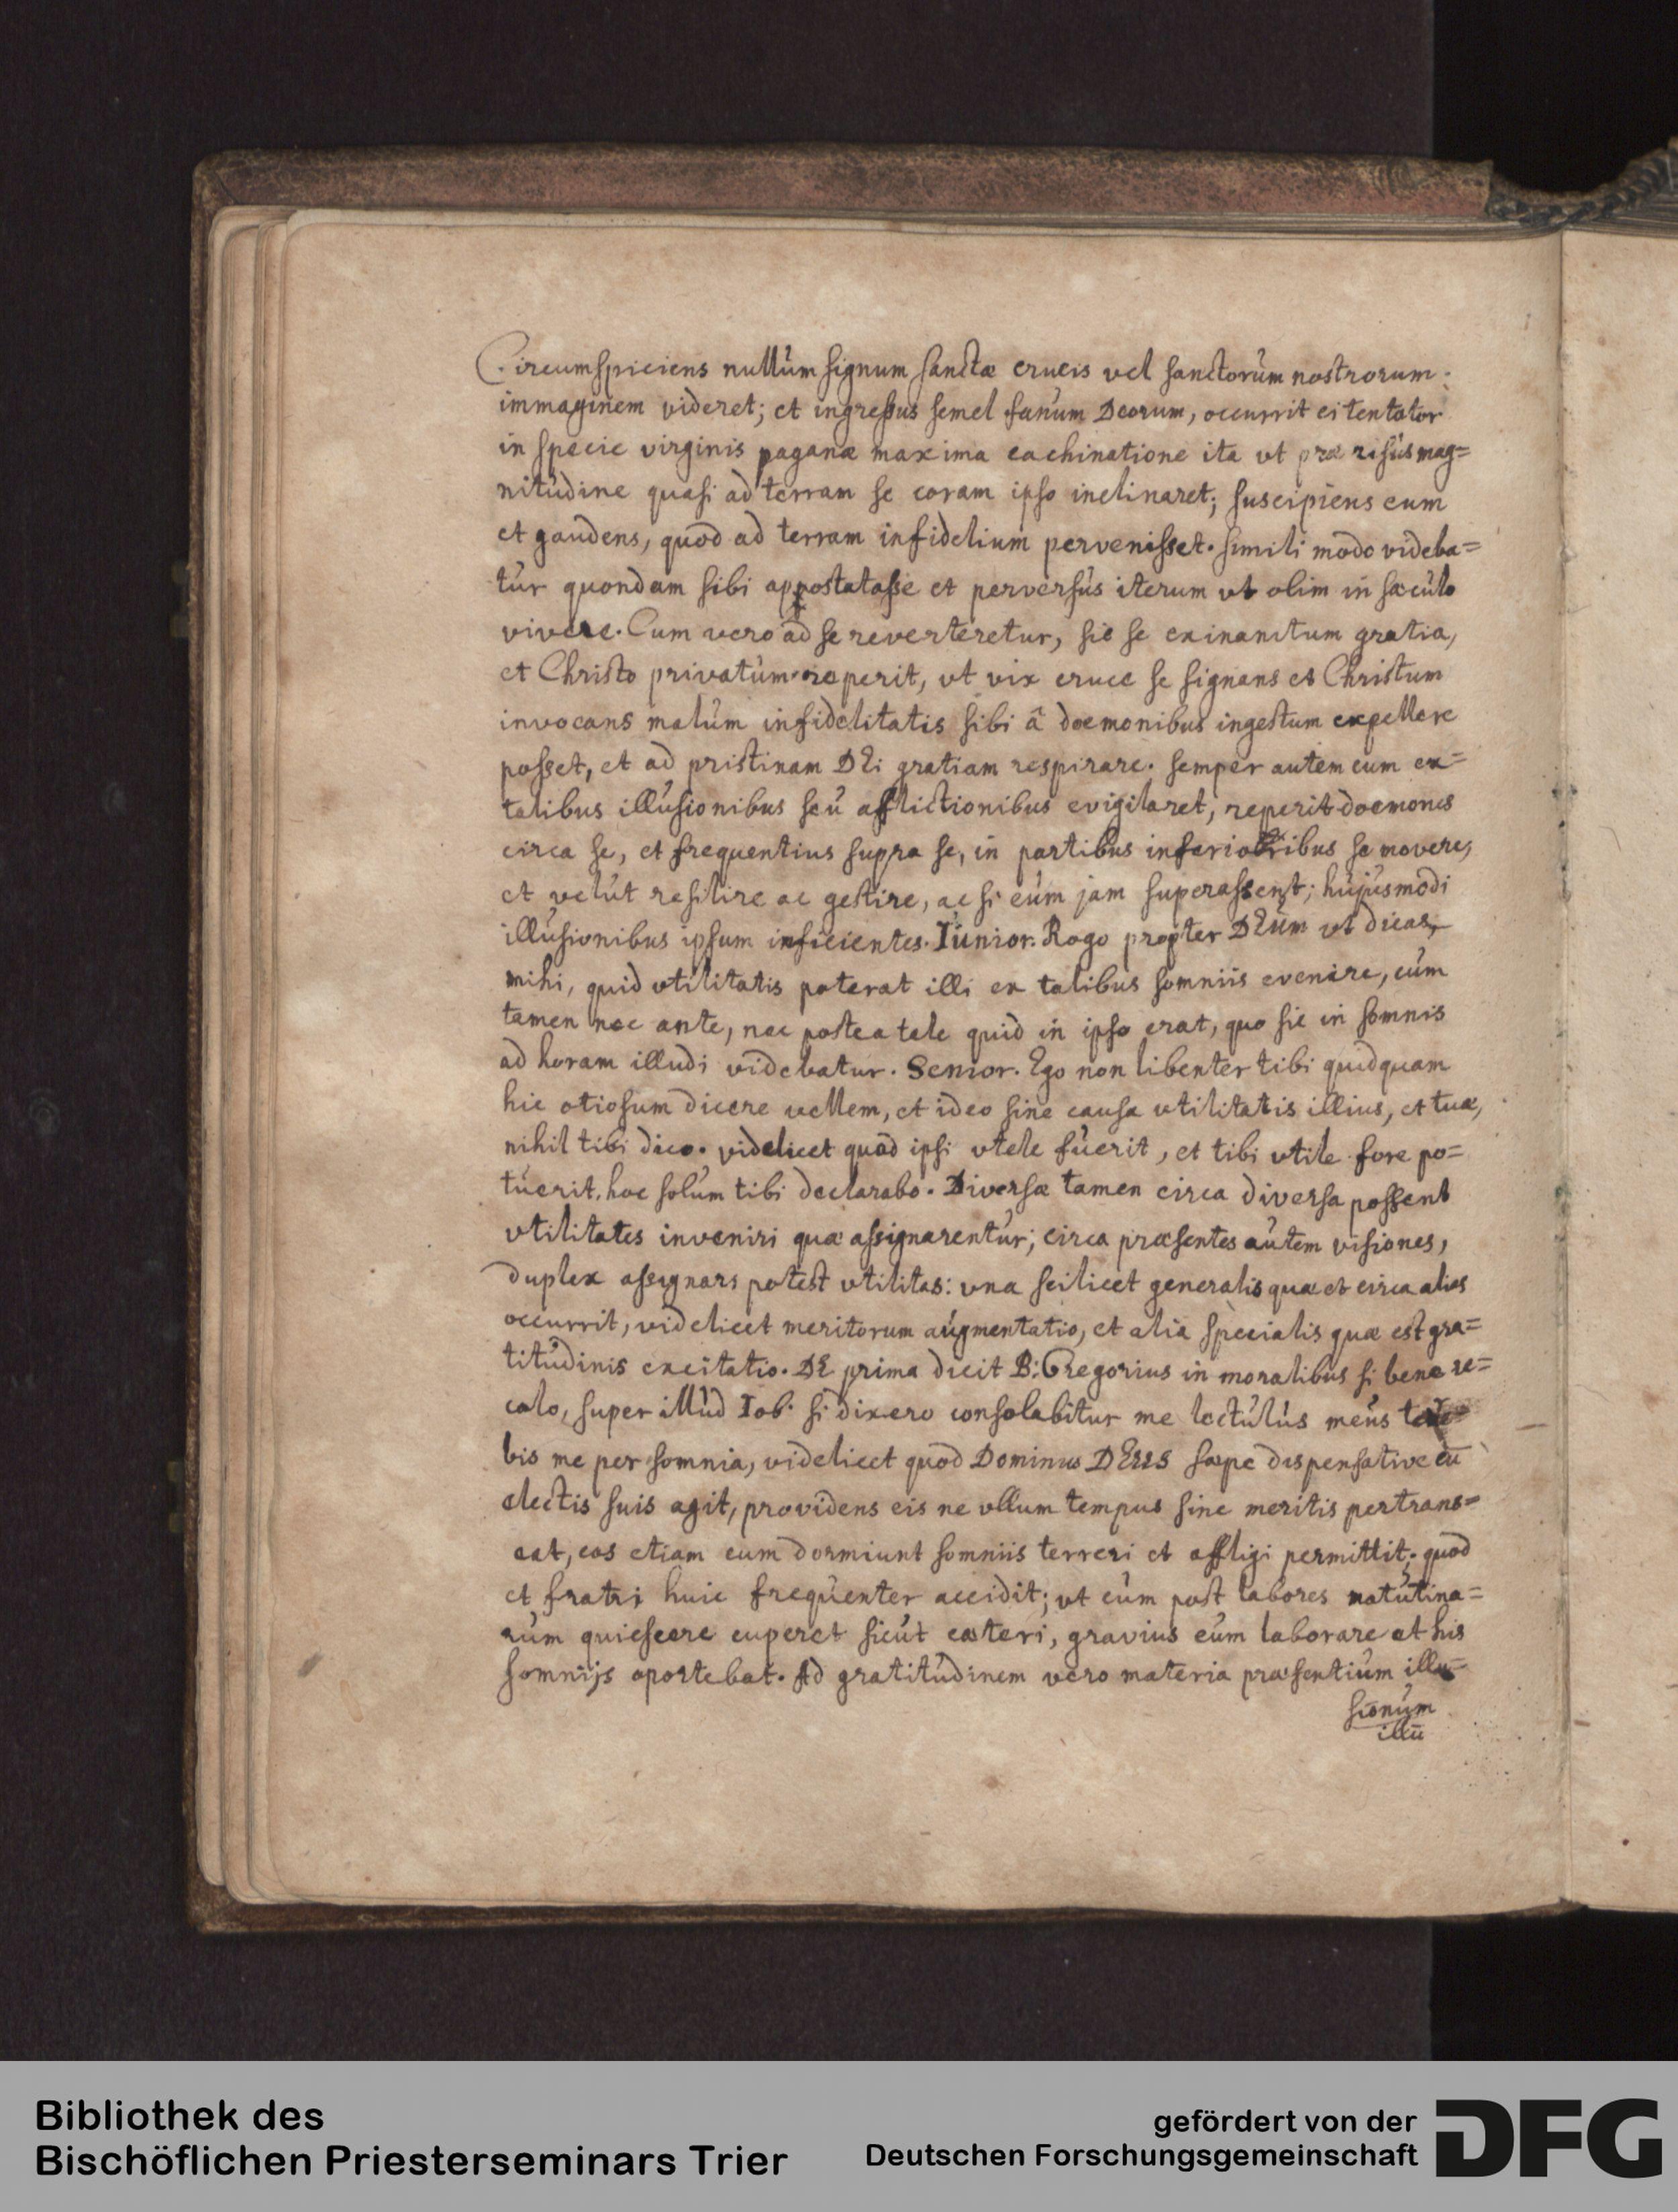 Circumspiciens nullum signum sanctæ crucis vel sanctorum nostrorum
immaginem videret; et ingressus semel fanum Deorum, occurrit ei tentator
in specie virginis paganæ maxima cachinatione ita vt præ risus mag=
nitudine quasi ad terram se coram ipso inclinaret; suscipiens eum
et gaudens, quod ad terram infidelium pervenisset. simili modo videba=
tur quondam sibi appostatasse et perversus iterum vt olim in sæculo
vivere. Cum vero ad se reverteretur, sic se exinanitum gratia,
et Christo privatum reperit, vt vix cruce se signans et Christum
invocans malum infidelitatis sibi â dœmonibus ingestum expellere
posset, et ad pristinam DEi gratiam respirare. semper autem cum ex=
talibus illusionibus seu afflictionibus evigilaret, reperit dœmones
circa se, et frequentius supra se, in partibus inferioribus se movere,
et velut resilire ac gestire, ac si eum jam superassent; hujusmodi
illusionibus ipsum inficientes. Iunior. Rogo propter DEum vt dicas
mihi, quid vtilitatis poterat illi ex talibus somniis evenire, cum
tamen nec ante, nec postea tale quid in ipso erat, quo sic in somnis
ad horam illudi videbatur. Senior. Ego non libenter tibi quidquam
hic otiosum dicere vellem, et ideo sine causa vtilitatis illius, et tuæ,
nihil tibi dico. videlicet quod ipsi vtele fuerit, et tibi vtile fore po=
tuerit, hoc solum tibi declarabo. Diversæ tamen circa diversa possent
vtilitates inveniri quæ assignarentur; circa præsentes autem visiones,
duplex assignari potest vtilitas: vna scilicet generalis quæ et circa alios
occurrit, videlicet meritorum augmentatio, et alia specialis quæ est gra=
titudinis excitatio. DE prima dicit B: Gregorius in moralibus si bene re=
colo, super illud Iob. si dixero consolabitur me lectulus meus
bis me per somnia, videlicet quod Dominus DEUS sæpe dispensative cū
electis suis agit, providens eis ne vllum tempus sine meritis pertrans=
eat, eos etiam cum dormiunt somniis terreri et affligi permittit; quod
et fratri huic frequenter accidit; vt cum post labores matutina=
rum quiescere cuperet sicut cæteri, gravius eum laborare et his
somnijs oportebat. Ad gratitudinem vero materia præsentium illu=
sionum
illū
Bibliothek des
Bischöflichen Priesterseminars Trier
gefördert von der
Deutschen Forschungsgemeinschaft
DFG